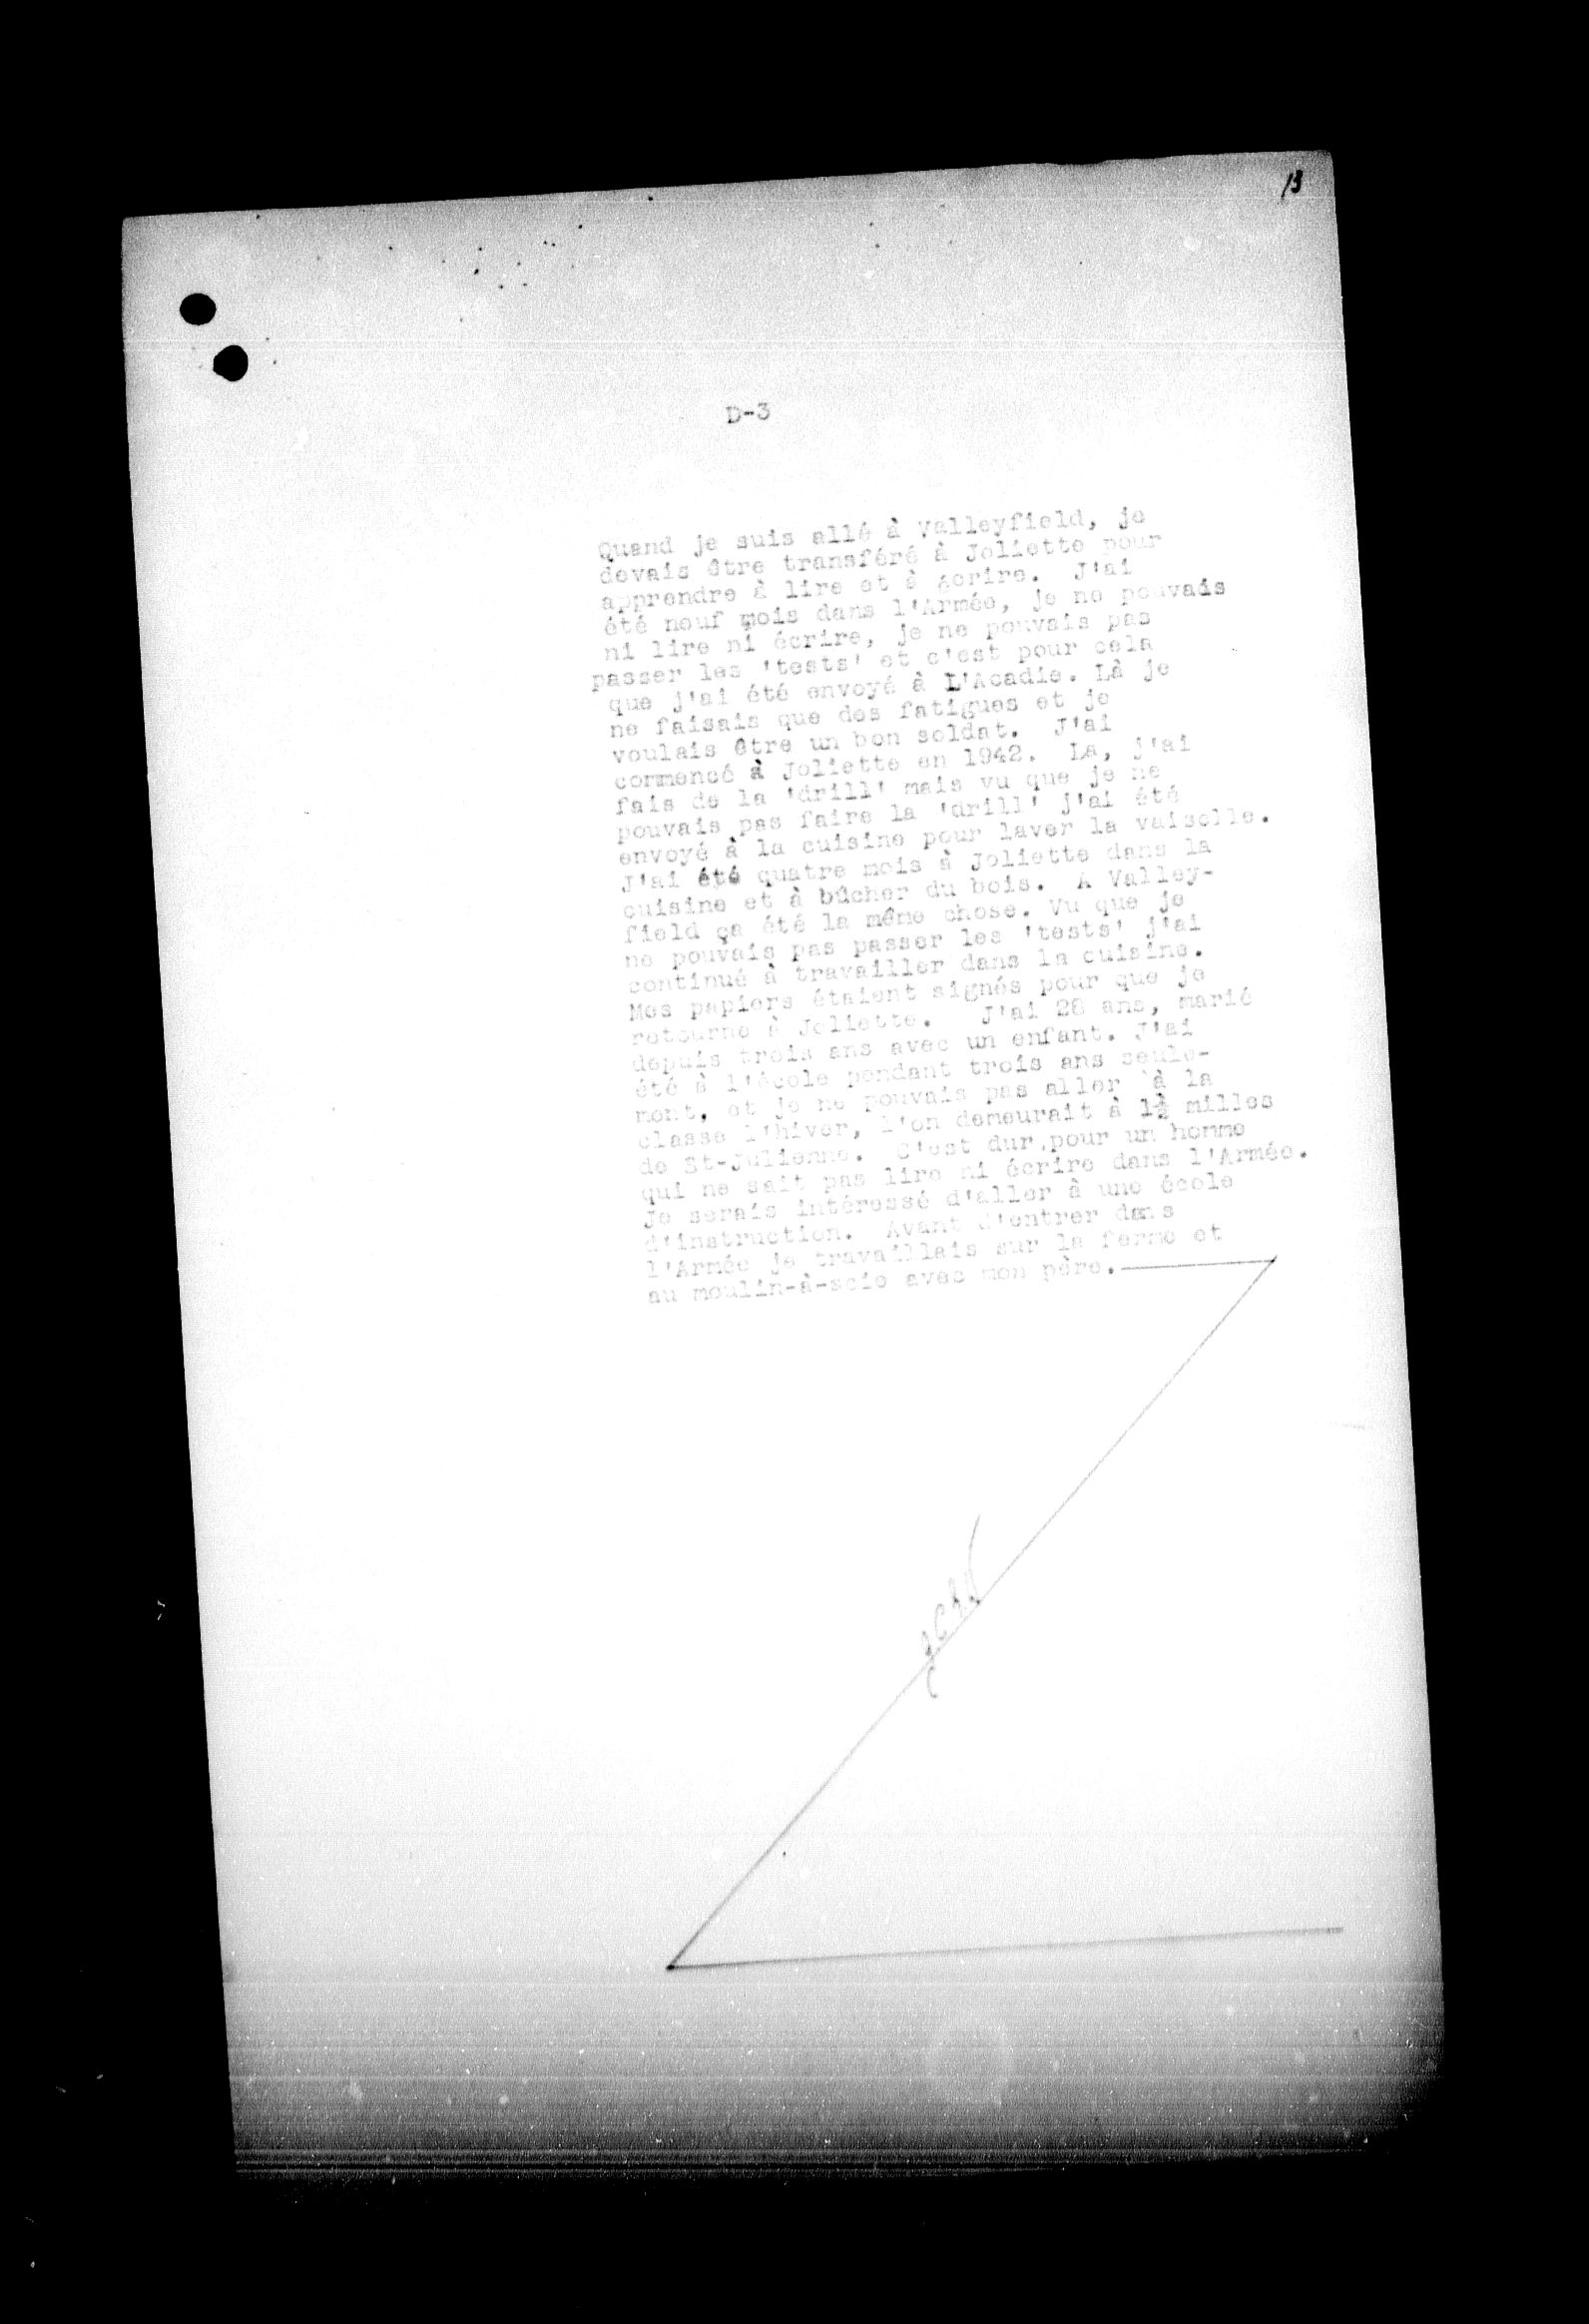 13
D-3
Quand je suis allé à Valleyfield, je
devais être transféré à Joliette pour
apprendre à lire et à écrire. J'ai
été neuf mois dans l'Armée, je ne pouvais
ni lire ni écrire, je ne pouvais pas
passer les 'tests' et c'est pour cela
que j'ai été envoyé à L'Acadie. Là je
ne faisais que des fatigues et je
voulais être un bon soldat. J'ai
commencé à Joliette en 1942. La, j'ai
fais de la 'drill' mais vu que je ne
pouvais pas faire la 'drill' j'ai été
envoyé à la cuisine pour laver la vaiselle.
J'ai été quatre mois à Joliette dans la
cuisine et à bûcher du bois. A Valley-
field ça été la même chose. Vu que je
ne pouvais pas passer les 'tests' j'ai
continué à travailler dans la cuisine.
Mes papiers étaient signés pour que je
retourne à Joliette. J'ai 28 ans, marié
depuis trois ans avec un enfant. J'ai
été à l'école pendant trois ans seule-
ment, et je ne pouvais pas aller à la
classe l'hiver, l'on demeurait à 1½ milles
de St-Julienne. C'est dur pour un homme
qui ne sait pas lire ni écrire dans l'Armée.
Je serais intéressé d'aller à une école
d'instruction. Avant d'entrer dans
l'Armée je travaillais sur la ferme et
au moulin-à-scie avec mon père.